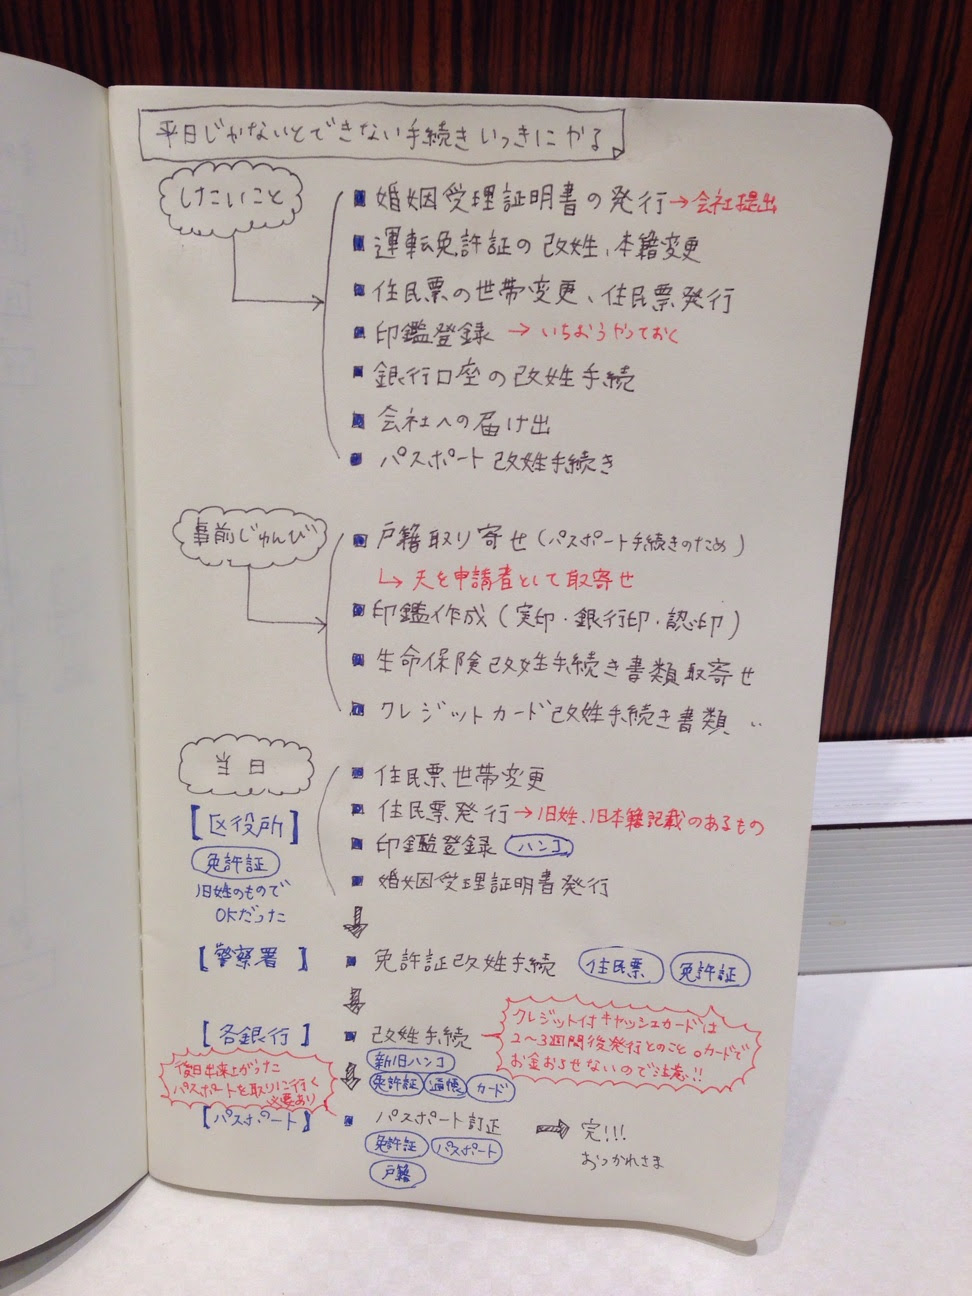 平日じゃないとできない手続きいっきにやる
したいこと
婚姻受理証明書の発行→会社提出
運転免許証の改姓、本籍変更
住民票の世帯変更、住民票発行
印鑑登録 → いちおうやっておく
銀行口座の改姓手続
会社への届け出
パスポート改姓手続き
事前じゅんび
戸籍取り寄せ(パスポート手続きのため)
↳ 夫を申請者として取寄せ
印鑑作成(実印・銀行印・認印)
生命保険改姓手続き書類取寄せ
クレジットカード改姓手続き書類 〃
当日
住民票世帯変更
【区役所】
住民票発行→旧姓、旧本籍記載のあるもの
免許証
印鑑登録 ハンコ
旧姓のもので
OKだった
婚姻受理証明書発行
【警察署】
免許証改姓手続 住民票 免許証
【各銀行】
改姓手続
クレジット付キャッシュカードは
2〜3週間後発行とのこと。カードで
お金おろせないので注意!!
新旧ハンコ
免許証 通帳 カード
後日出来上がった
パスポートを取りに行く
必要あり
【パスポート】
パスポート訂正 ⇒ 完!!!
おつかれさま
免許証 パスポート
戸籍